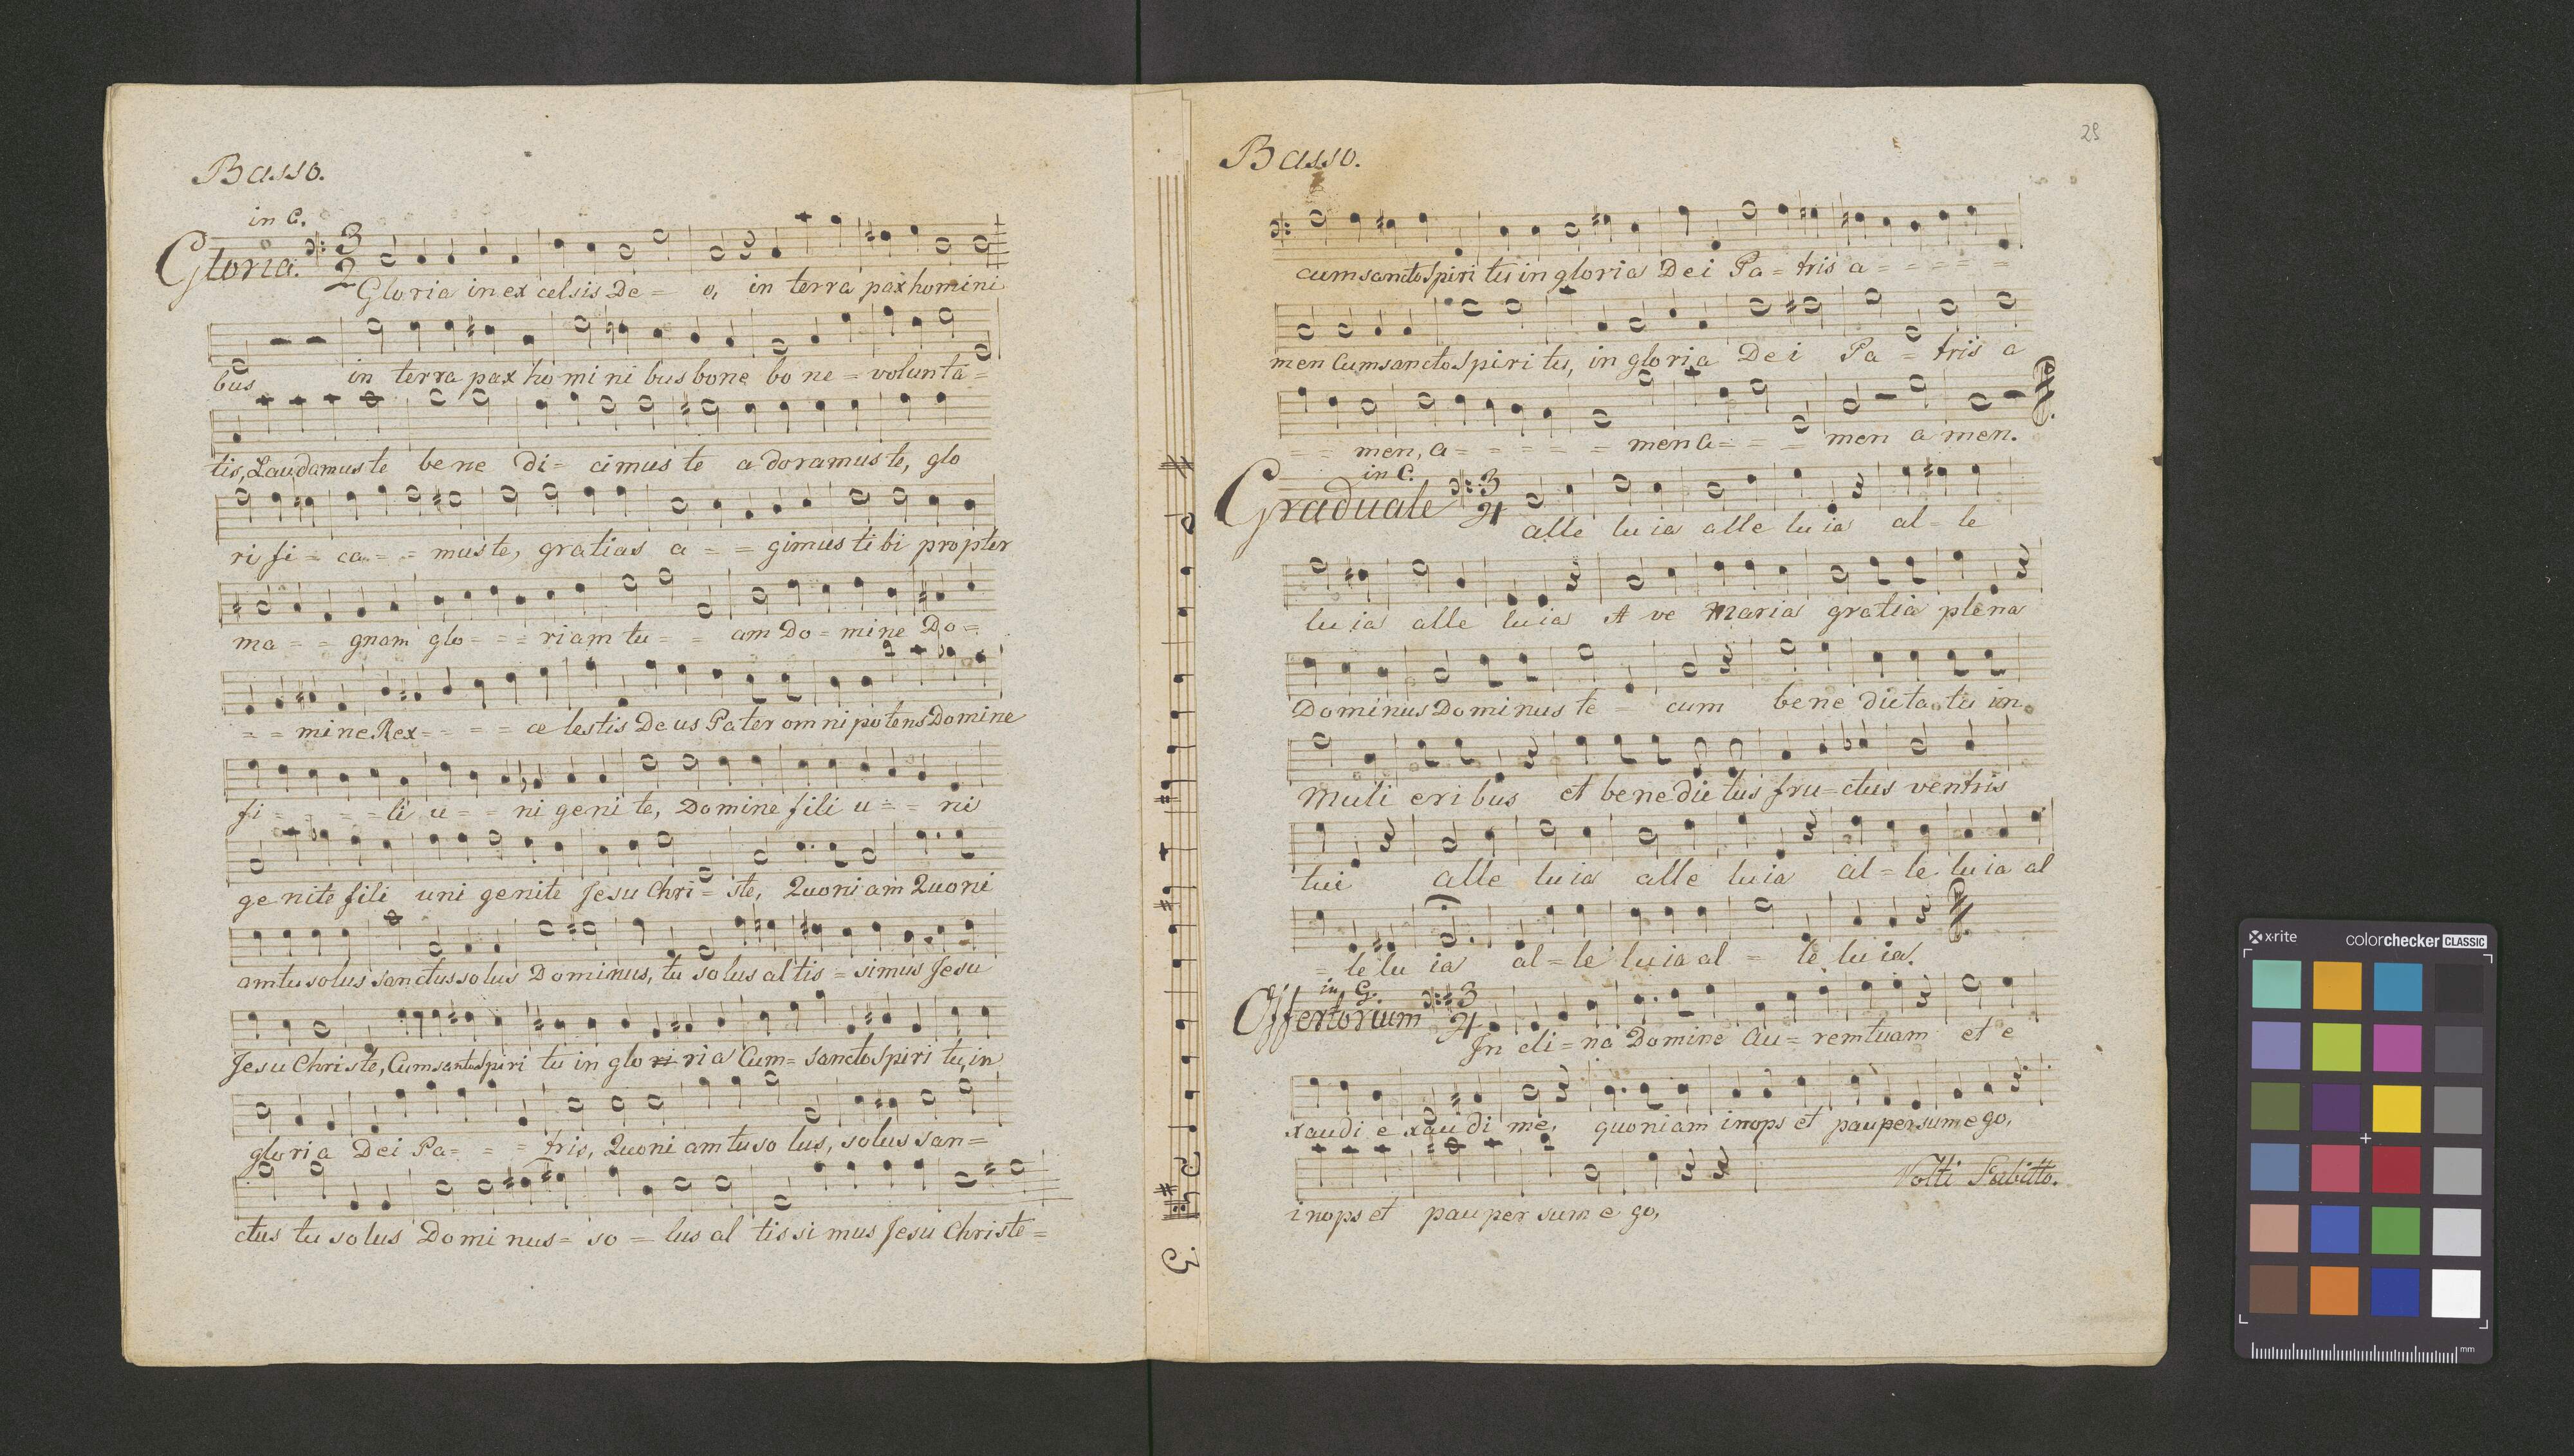 Basso.
in C.
Gloria. 3 2
Gloria in ex celsis De = o, in terra pax homini
bus in terra pax ho mi ni bus bone bo ne = volunta =
tis, Laudamus te be ne di = cimus te a doramus te, glo
ri fi = ca = = = mus te, gratias a = = gimus ti bi propter
ma = = gnam glo = = = riam tu = = am Do = mine Do =
= = mine Rex = = = = ce lestis Deus Pater om ni potens Domine
fi = = = = li u = = ni geni te, Domine fili u = = ni
ge nite fili uni genite Jesu Chri = ste, Quoni am Quoni
am tu solus sanctus solus Dominus, tu solus al tis = simus Jesu
Jesu Christe, Cum sancto spiri tu in glo ri ria Cum = Sancto Spiri tu, in
glo ri a Dei Pa = = = tris, Quoni am tu so lus, solus san =
ctus tu solus Domi nus = so = lus al tis si mus Jesu Christe =
29
Basso.
cum sancto Spiri tu in gloria Dei Pa = tris a = = = = =
men Cum sancto Spiri tu, in gloria Dei Pa = tris a
= = men, a = = = = = men a = = = men a men.
in C.
Graduale 3 4
alle lu ia alle lu ia al = le
lu ia alle lu ia A ve Maria gratia plena
Dominus Dominus te = cum bene dicta tu in
Muli eri bus et bene dic tus fru = ctus ventris
tui alle lu ia alle lu ia al = le lu ia al
= le lu ia al = le lu ia al = le lu ia.
in G.
Offertorium 3 4
In cli = na Domine Au = rem tuam et e
xaudi e xau di me, quoniam inops et pauper sum ego,
inops et pau per sum e go,
Volti Subitto.
x·rite
colorchecker CLASSIC
mm